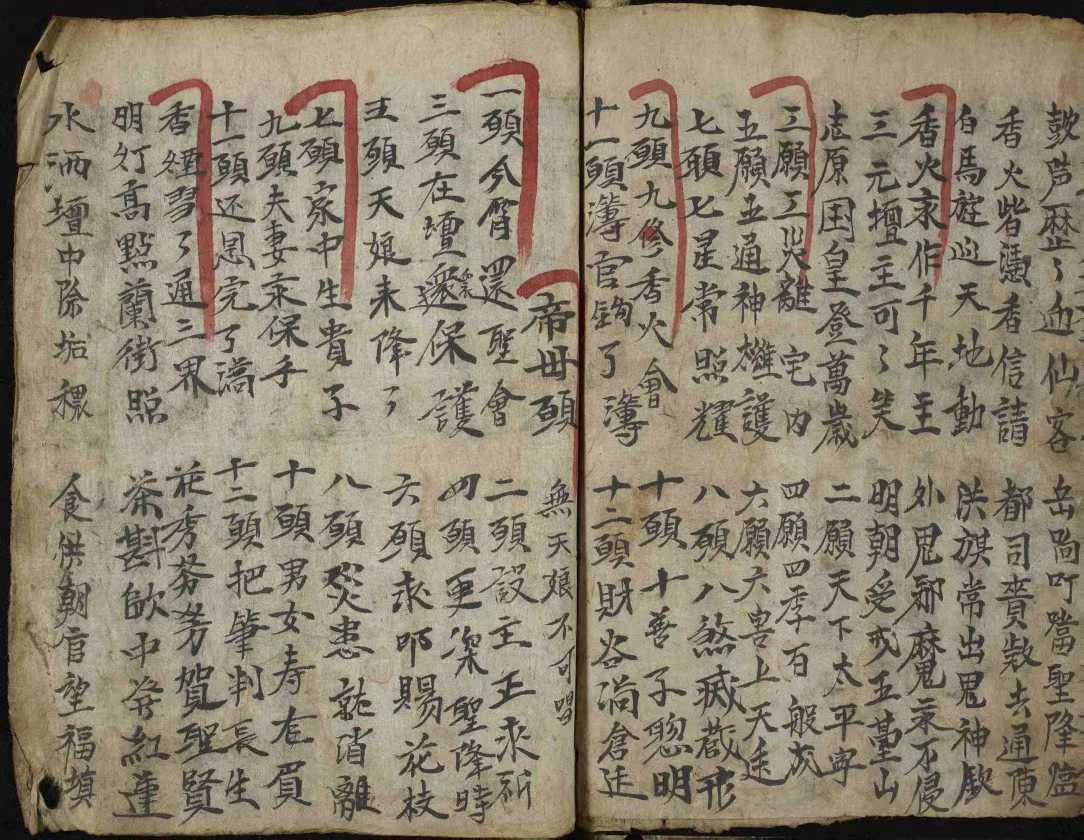 鼓声歴〻迎仙客 岳尚叮噹聖降壇
香火皆憑香信請 都司賫敕去通陳
白馬遊巡天地動 洪旗常出鬼神欽
香火永作千年主 外鬼邪魔永不侵
三元壇主可〻笑 明朝受戒五臺山
志原囯皇登萬歲 二願天下太平寕
三願三災離宅内 四願四季百般成
五願五通神權護 六願六畜上天廷
七頭七星常照耀 八頭八煞滅藏形
九頭九修香火會 十頭十善子聦明
十一頭簿官鈎了簿 十二頭財谷滿倉廷
帝母頭 無天娘不可唱
一頭今宵還聖會 二頭設主正求祈
三頭在壇還保護 四頭更深聖降時
五頭天娘来降了 六頭求印賜花枝
七頭家中生貴子 八頭災患就消離
九頭夫妻永保手 十頭男女寿右眉
十一頭还恩完了滿 十二頭把筆判長生
香煙習了通三界 花秀芬芳賀聖賢
明灯高點蘭街照 茶斟飲中発紅蓮
水洒壇中除垢穢 食供朝官望福填